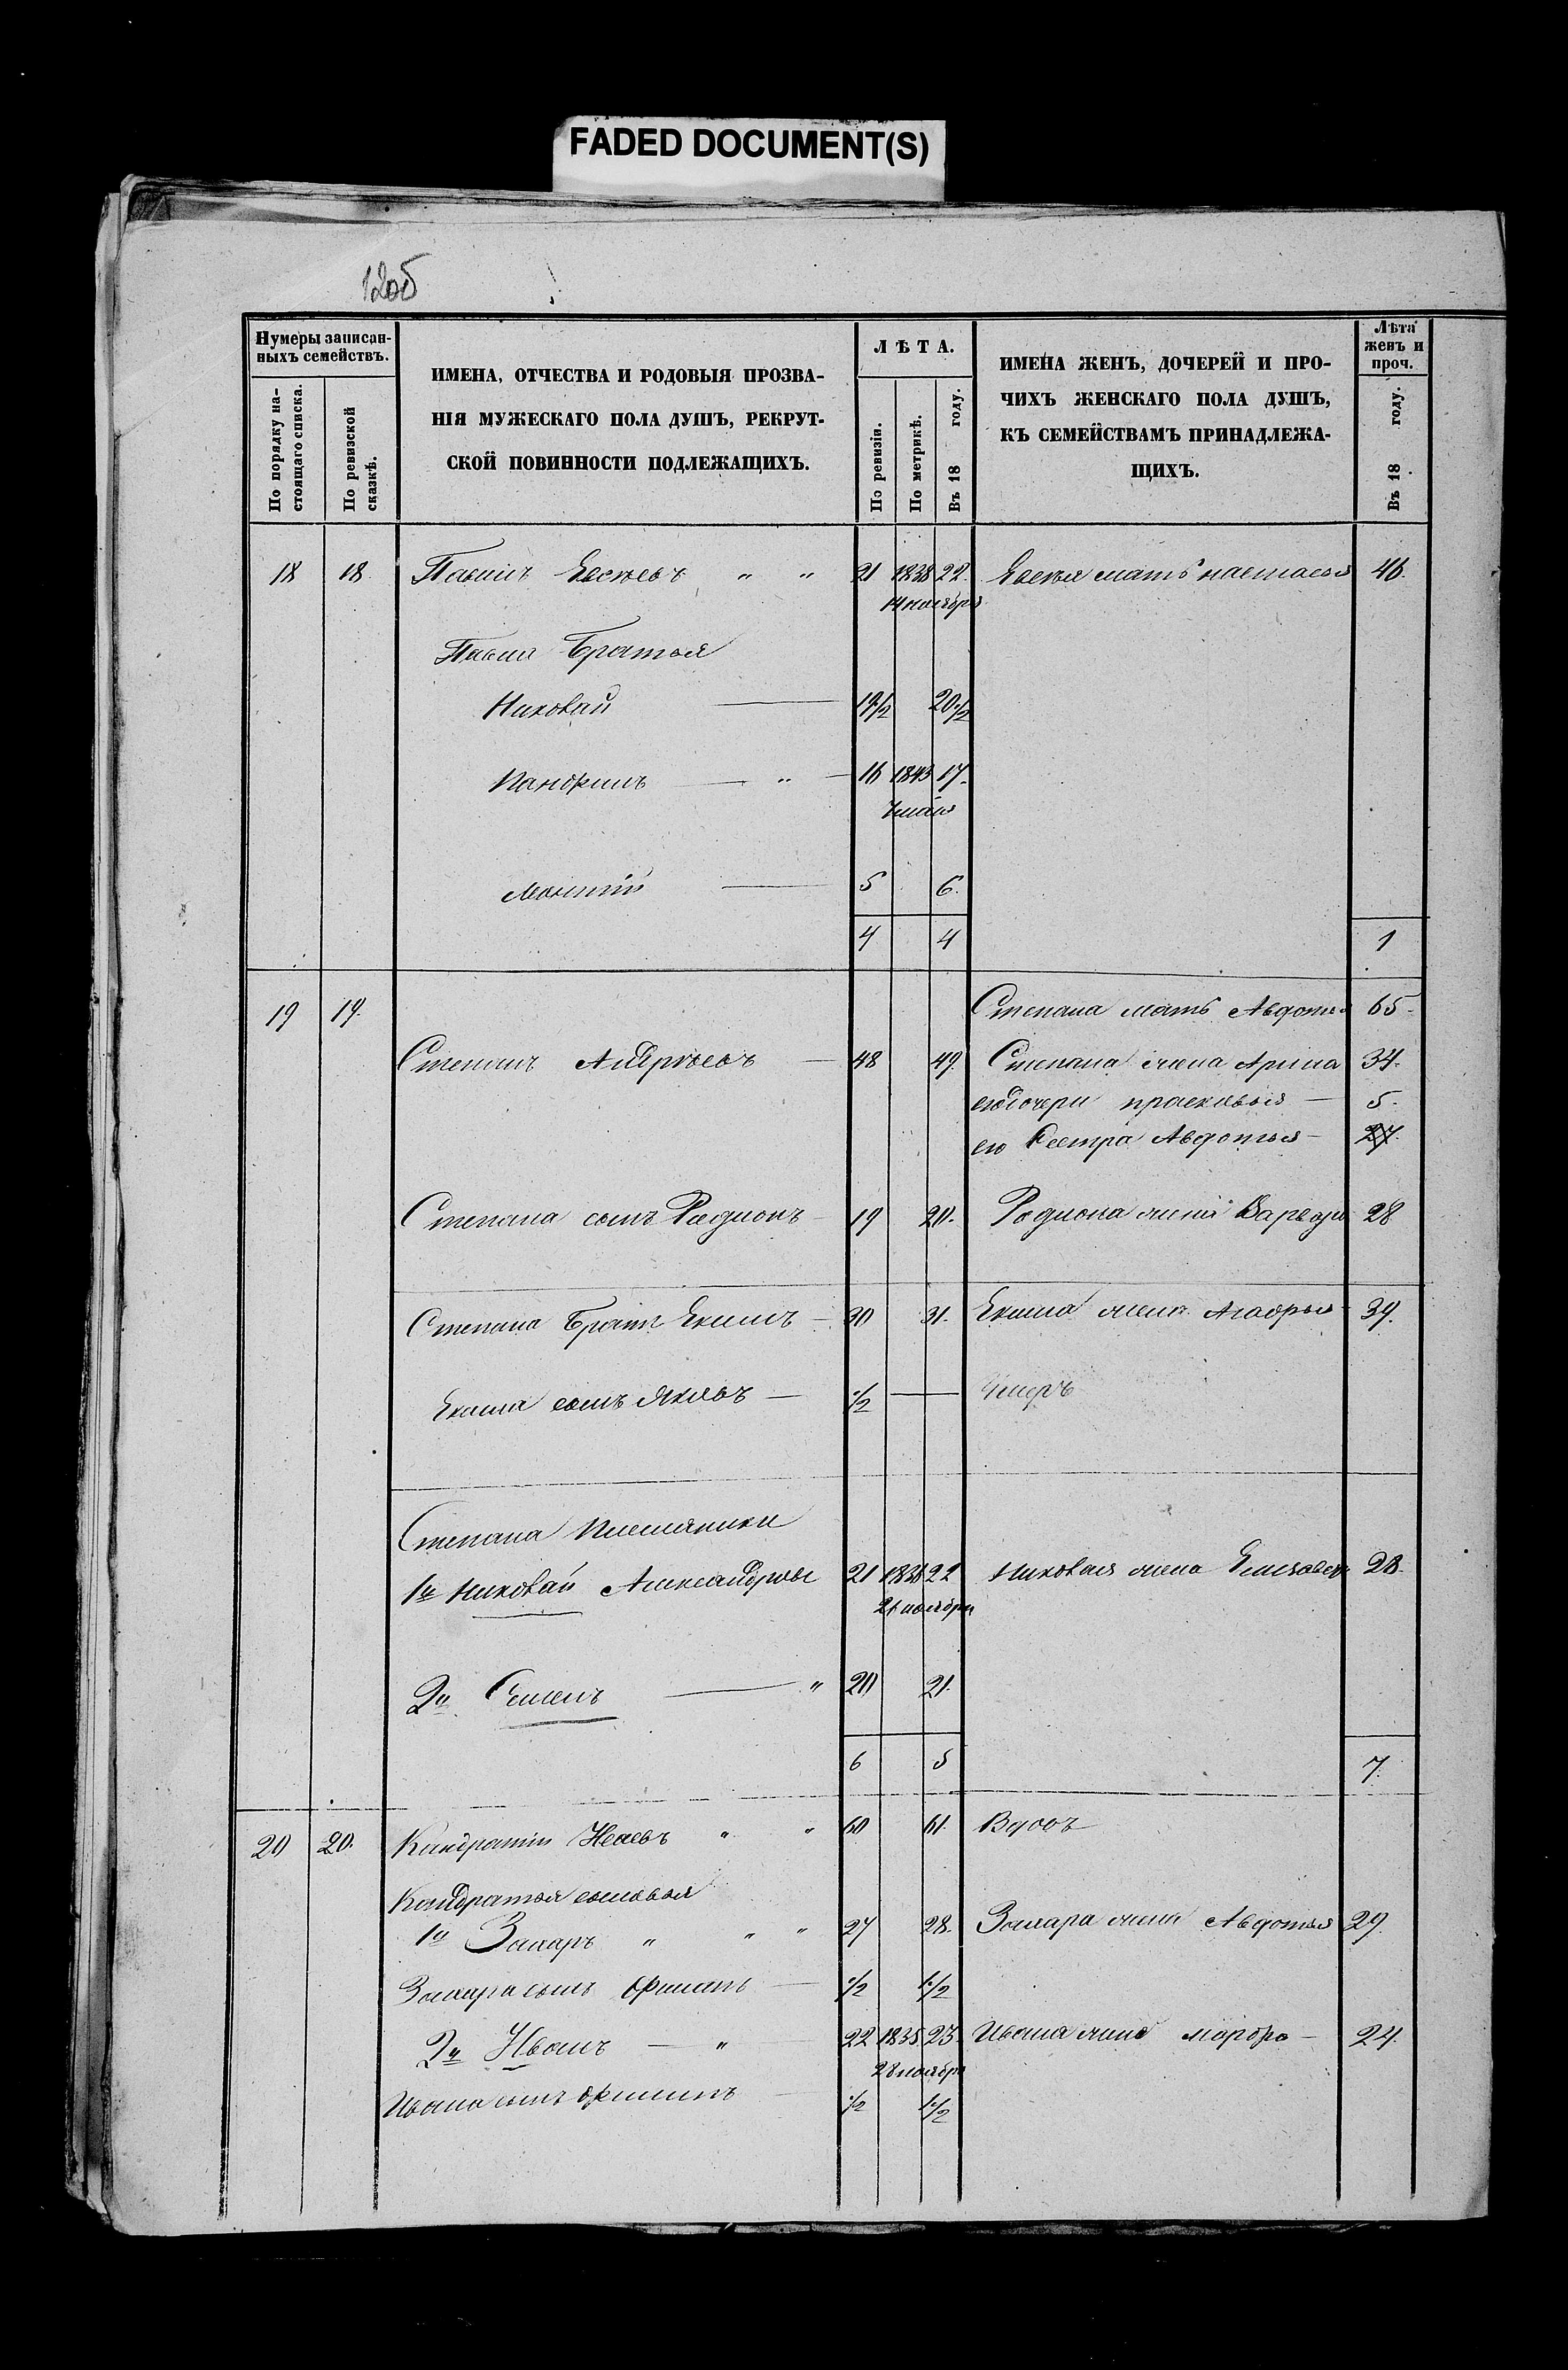 FADED DOCUMENT(S)
12об
Нумеры записан-
ныхъ семействъ.
По порядку на-
стоящаго списка.
По ревизской
сказкѣ.
ИМЕНА, ОТЧЕСТВА И РОДОВЫЯ ПРОЗВА-
НІЯ МУЖЕСКАГО ПОЛА ДУШЪ, РЕКРУТ-
СКОЙ ПОВИННОСТИ ПОДЛЕЖАЩИХЪ.
ЛѢТА.
По ревизіи.
По метрикѣ.
Въ 18 году.
ИМЕНА ЖЕНЪ, ДОЧЕРЕЙ И ПРО-
ЧИХЪ ЖЕНСКАГО ПОЛА ДУШЪ,
КЪ СЕМЕЙСТВАМЪ ПРИНАДЛЕЖА-
ЩИХЪ.
Лѣта
женъ и
проч.
Въ 18 году.
18 18. 21 1838 22. мать настасья 46.
14 ноября
Братья
Николай 19 1/2 20 1/2
16 1843 17.
7 мая
5 6.
4 4 1
19 19. Степана мать Авдотья 65.
Степанъ 48 49. Степана жена Арина 34.
его дочери прасковья 5.
его Сестра Авдотья 27.
Степана сынъ Радионъ 19 20. Родиона жена Варвара 28
Степана Братъ Екимъ 30 31. Екима жена 39.
Екима сынъ Яковъ 1/2 Умеръ
Степана Племяники
1й Николай Александровы 21 1838 22 Николая жена Елизавета 28.
21 ноября
2й Семенъ " 20 21.
6 5 7.
20 20. Кандратий " " 60 61. Вдовъ
Кондратья сыновья
1й Захаръ " " " 27 28. Захара жена Авдотья 29.
Захара сынъ 1/2 1 1/2
2й Иванъ " 22 1838 23. Ивана жена 24.
28 ноября
Ивана сынъ 1/2 1 1/2